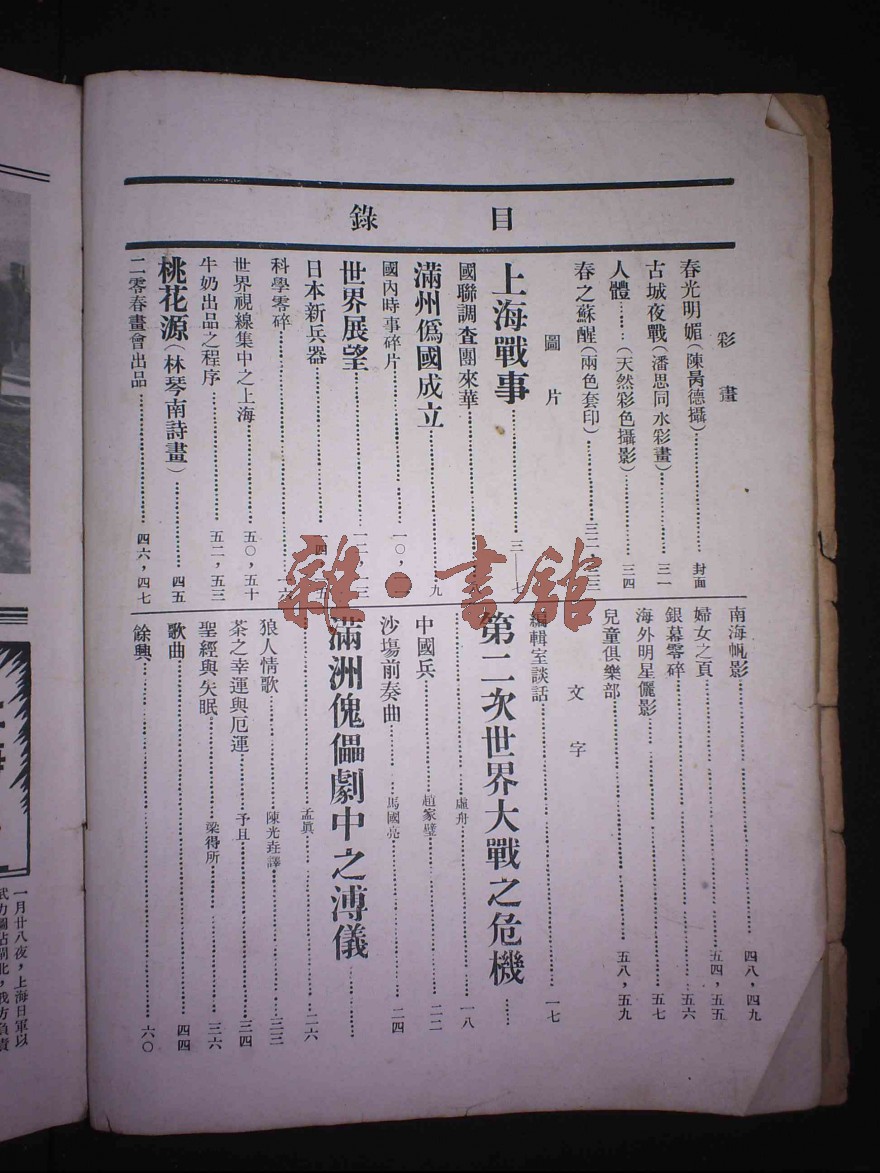 目錄
彩畫
春光明媚(陳昺德攝)………封面
古城夜戰(潘思同水彩畫)………三一
人體……(天然彩色攝影)………三四
春之蘇醒(兩色套印)………三二,三三
圖片
上海戰事………三—七
國聯調查團來華………
滿州僞國成立………九
國內時事碎片………一〇,一一
世界展望………一二,一三
日本新兵器………
科學零碎………一六
世界視線集中之上海………五〇,五十
牛奶出品之程序………五二,五三
桃花源(林琴南詩畫)………四五
二零春畫會出品………四六,四七
南海帆影………四八,四九
婦女之頁………五四,五五
銀幕零碎………五六
海外明星儷影………五七
兒童俱樂部………五八,五九
文字
編輯室談話………一七
第二次世界大戰之危機……
………盧舟………一八
中國兵………趙家璧………二二
沙塲前奏曲………馬國亮………二四
滿洲傀儡劇中之溥儀………
………孟眞………二六
狼人情歌………陳光垚譯………三三
茶之幸運與厄運………予且………三四
聖經與失眠………梁得所………三六
歌曲………四四
餘興………六〇
雜·書館
一月廿八夜,上海日軍以
武力圖佔閘北,我方負責